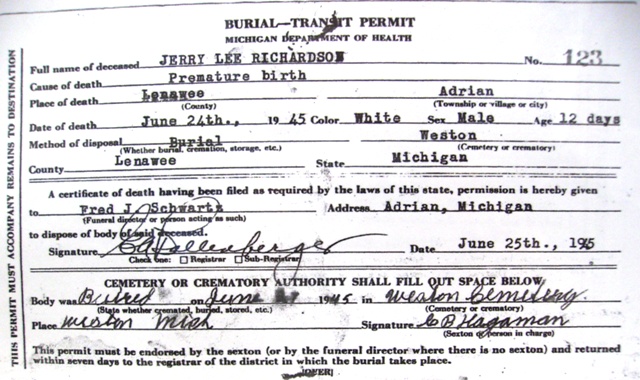 BURIAL—TRANSIT PERMIT
MICHIGAN DEPARTMENT OF HEALTH
Full name of deceased JERRY LEE RICHARDSON No. 123
Cause of death Premature birth
Place of death Lenawee Adrian
(County) (Township or village or city)
Date of death June 24th., 1945 Color White Sex Male Age 12 days
Method of disposal Burial Weston
(Whether burial, cremation, storage, etc.) (Cemetery or crematory)
County Lenawee State Michigan
A certificate of death having been filed as required by the laws of this state, permission is hereby given
to Fred J. Schwartz Address Adrian, Michigan
(Funeral director or person acting as such)
to dispose of body of said deceased.
Signature Date June 25th., 1945
Check one: Registrar Sub-Registrar
CEMETERY OR CREMATORY AUTHORITY SHALL FILL OUT SPACE BELOW
Body was Buried on June 1945 in Weston Cemetery.
(State whether cremated, buried, stored, etc.) (Cemetery or crematory)
Place Weston Mich Signature C B Hagaman
(Sexton or person in charge)
This permit must be endorsed by the sexton (or by the funeral director where there is no sexton) and returned
within seven days to the registrar of the district in which the burial takes place.
(OVER)
THIS PERMIT MUST ACCOMPANY REMAINS TO DESTINATION